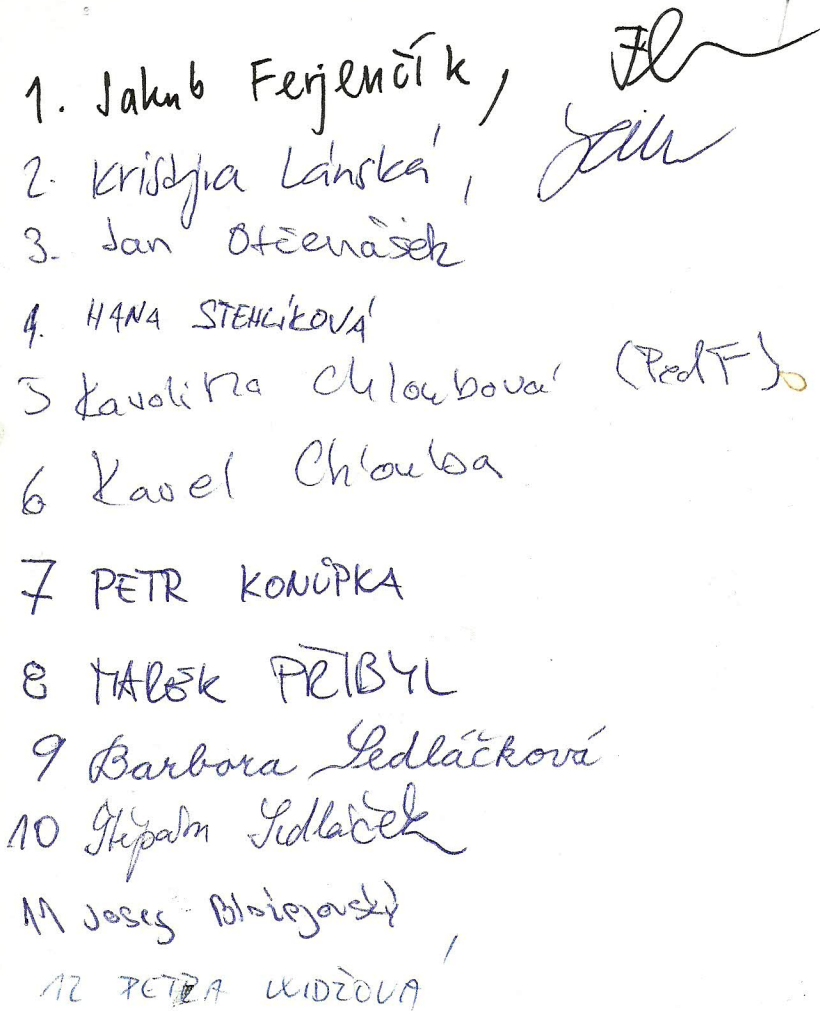 1. Jakub Ferjenčík,
2. Kristýna Lánská,
3. Jan Otčenášek
4. HANA STEHLÍKOVÁ
5 Karolína Chloubová (PedF)
6 Karel Chlouba
7 PETR KONŮPKA
8 MAREK PŘIBYL
9 Barbora Sedláčková
10 Štěpán Sedláček
11 Josef
12 PETRA